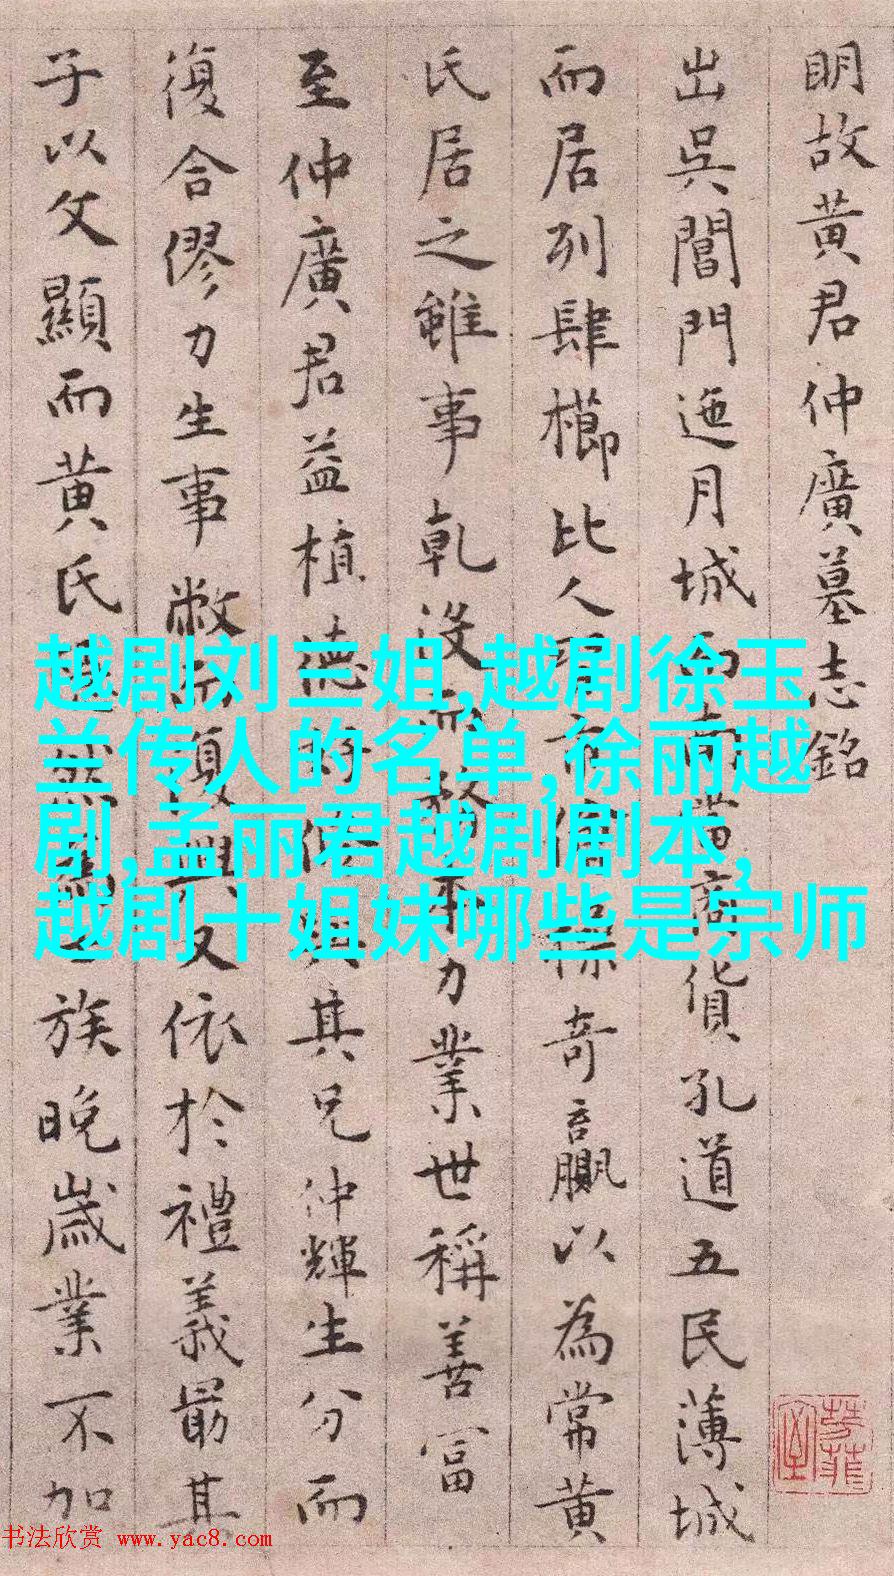 明故黄君仲廣墓志銘
出吳閶門迤月城而南當商貨孔道五民薄城
而居列肆櫛比人習市儈操奇贏以為常黄
氏居之雖事乾没而敦本力業世稱善富
至仲廣君益植德好儒與其兄仲輝生分而
復合僇力生事敝而復興又依於禮義最其
子以文顯而黄氏族晚歲業不加
越剧刘三姐,越剧徐玉
兰传人的名单,徐丽越
剧,孟丽君越剧剧本,
越剧十姐妹哪些是宗师
书法欣赏 www.yac8.com